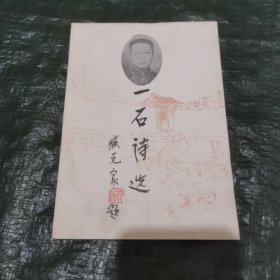 一石诗选
臧克家题